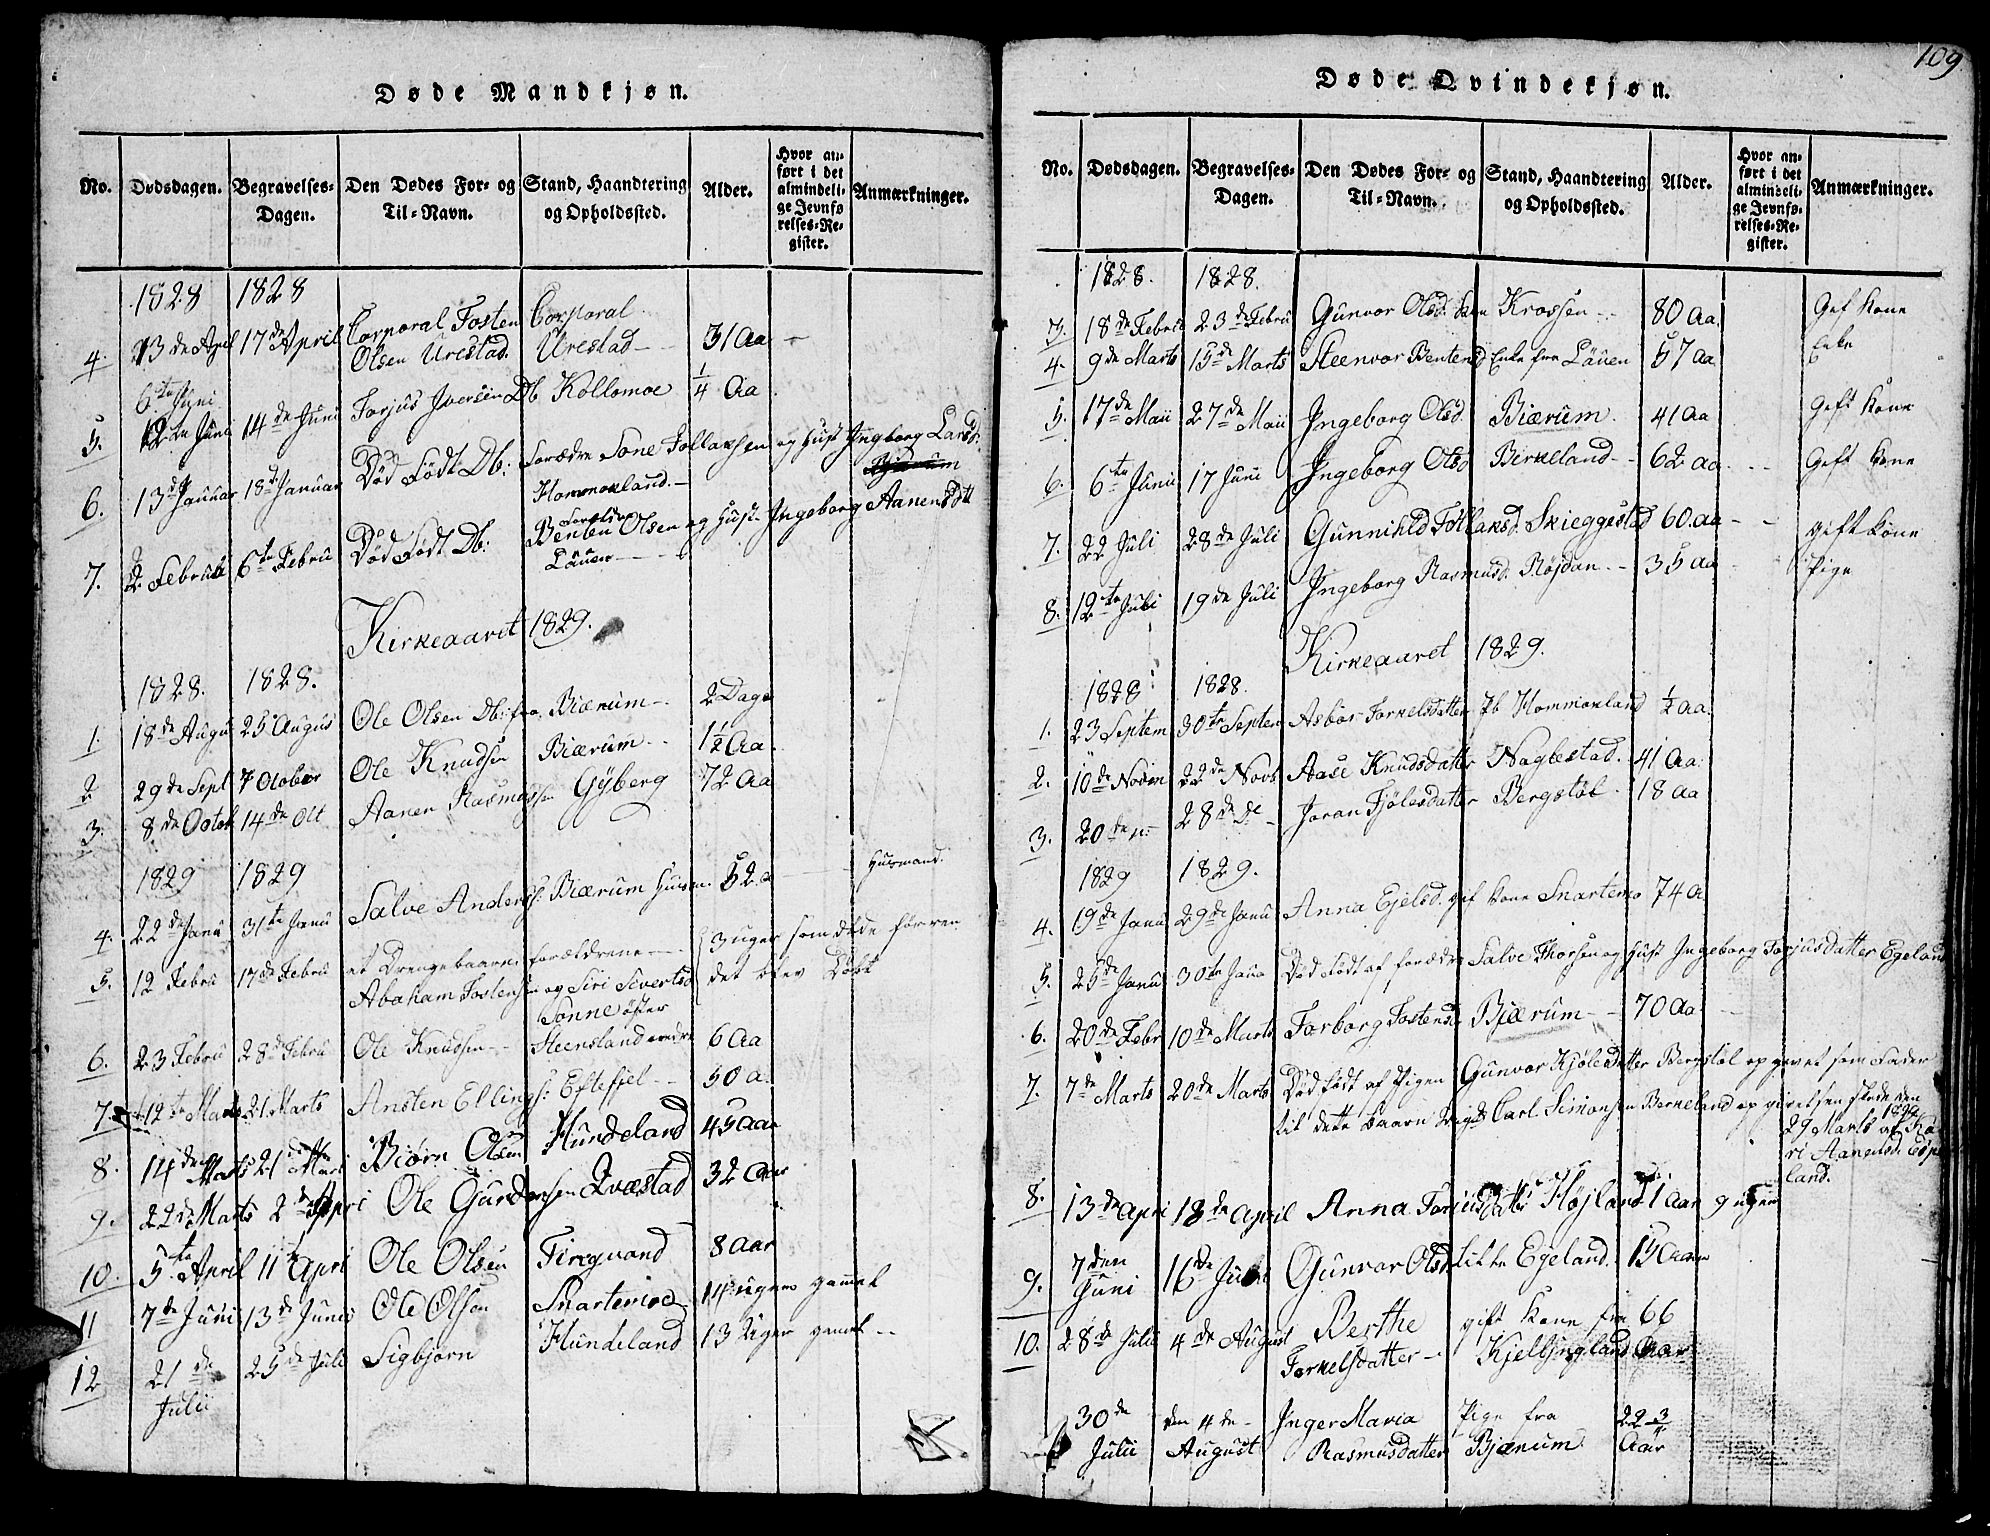 109
Døde Mandkjøn.
No. Dødsdagen. Begravelses-Dagen. Den Dødes For- og Til-Navn. Stand, Haandtering og Opholdssted. Alder. Hvor anført i det almindelige Jevnførelses-Register. Anmærkninger.
1828 1828
4. 13 de April 17 de April Corporal Tosten Corporal
Olsen Urestad. Urestad 31 Aa
6te Juni
5. 14 de Juni Torjus Iversen Db Kollemoe 1/4 Aa
6. 13 d Januar 18 d Januar Død Født Db: Forædre Tollaksen og Hust Ingborg Larsd:
Hommokland.
7. 2 Februii 6te Febru Død Født Db: Benten Olsen og Hust: Ingeborg Aanensdtt
Läuen
Kirkeaaret 1829.
1828. 1828.
1. 18 de Augu 25 Augus Ole Olsen Db: fra Biærum 2 Dage
2 29 de Sept 7 October Ole Knudsen Biærum 1 1/2 Aa
3. 8 de Octob 14 de Okt Aanen Rasmussen Gÿberg 72 Aa
1829 1829
4. 22 de Janu 31te Janu Salve Anders: Biærum Husm. 52 a Husmand.
5. 12 Febru 17 de Febru et Drengebaarn forældrene 3 uger som døde førren
Abaham Tostensen og Siri Sivertsd det blev Døbt
Sønne
6. 23 Febru 28 d Febru Ole Knudsen Steensland 6 Aa
7. 12te Marts 21 Marts Ansten Ellings: Eftefjel 50 a.
8. 14 de Marts 21 Marti Biørn Olsen Hundeland 45 Aar
9. 22 de Marts 2 de Apri Ole Gundersen Qvæstad 32 Aar
10. 5te April 11te Apri Ole Olsen Tiregvand 8 Aar
11 7 de Juni 13 de Junii Ole Olsen Snartemoe 14 ugers gammel
12 21 de 25 de Juli Sigbjørn Hundeland 13 Uger gamel
Julii
Døde Qvindekjøn.
No. Dødsdagen. Begravelses-Dagen. Den Dødes For- og Til-Navn. Stand, Haandtering og Opholdssted. Alder. Hvor anført i det almindelige Jevnførelses-Register. Anmærkninger.
1828. 1828.
3. 18 de Febru 23 de Febru Gunvor Olsd. Krossen 80 Aa. Gift Kone
4. 9 de Marts 15 de Marts Steenvor Bentensd Enke fra Läuen 57 aa Enke
5. 17 de Maii 27 de Maii Ingeborg Olsd. Biærum. 41 Aa Gift Kone
6. 6te Junii 17 Juni Ingeborg Olsd Birkeland 62 aa Gift Kone
7. 22 Juli 28 de Juli Gunnihld Tollaksd. Skieggestad 60. aa gift Kone
8. 12te Juli 19 de Juli Ingeborg Rasmusd. Røjdan 35 aa Pige
Kirkeaaret 1829.
1828 1828.
1. 23 Septem 30te Septem Asbor Torkelsdatter Pb Hommokland 1/2 aa.
2. 10 de Novem 22 de Novb Aase Knudsdatter Naglestad. 41 Aa.
3. 20 de 28 de De Joran Fjølesdatter Bergstøl 18 aa
1829 1829.
4. 19 de Janu 29 de Janu Anna Ejelsd. gift Kone Snartemo 74 A
5. 25 de Janu 30te Janu Død født af forædre Salve Thorsen og Hust Ingeborg Torjusdatter Egeland
6. 20 de Febr 10 de Marts Torborg Tostensd Bjærum 70 Aa
7. 7 de Marts 20 de Marts Død født af Pigen Gunvor Kjølesdatter Bergstøl op givet som Fader
til dette Baarn Carl Simonsen Berkeland op givelsen skede den
29 Marts af
ri Aanensd.
land.
8. 13 de Apri 18 de April Anna Toriusdatter Højland 1 Aar 9 ugen
9. 7 den Juni 16 de Juni Gunvor Olsd. Litle Egeland. 15 Aar
10. 28 de Julii 4 de August Berthe gift Kone fra 66
Torkelsdatter Kjellingland Aar
30 de den 4 de Inger Maria Pige fra 22 3/4
Julii August Rasmusdatter Bjærum Aar